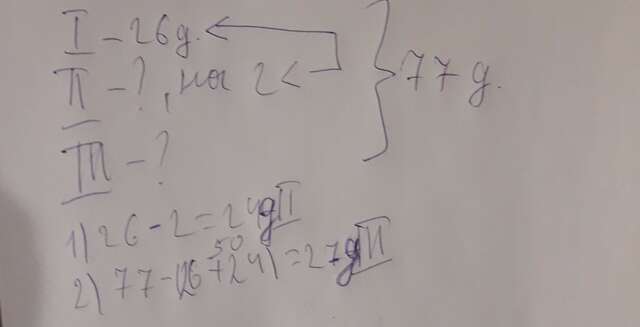 I – 26 д.
II – ?, на 2 <
} 77 д.
III – ?
1) 26 – 2 = 24 д II
50
2) 77 – (26 + 24) = 27 д III